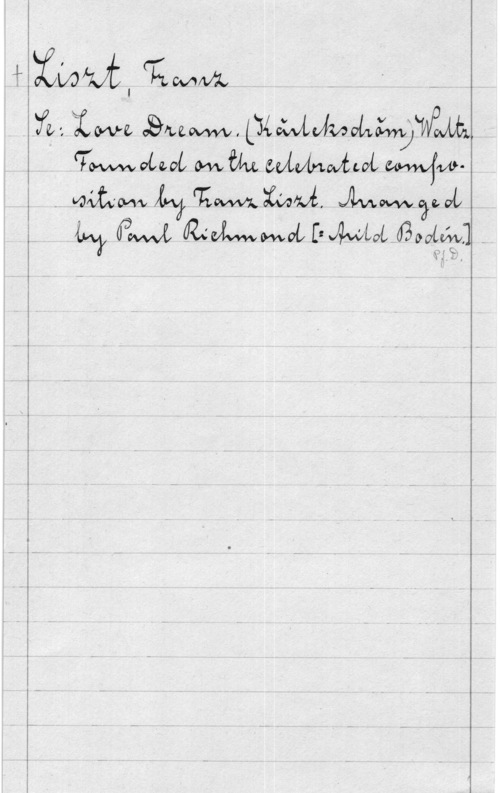 + Liszt, Franz
Se: Love Dream. (Kärleksdröm) Waltz.
Founded on the celebrated compo-
sition by Franz Liszt. Arranged
by Paul Richmond [= Arild Bodén.]
Pf. D.